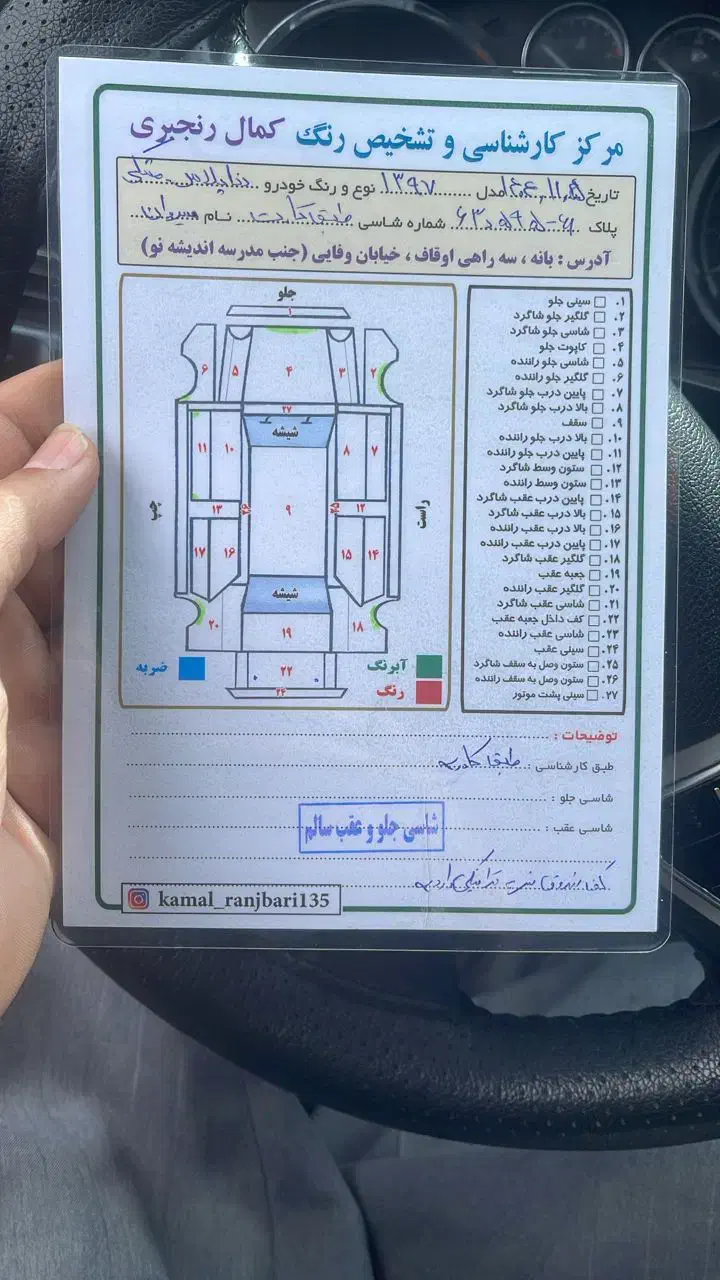 مرکز کارشناسی و تشخیص رنگ کمال رنجبری
تاریخ مدل ۱۳۹۷ نوع و رنگ خودرو
پلاک شماره شاسی نام
آدرس : بانه ، سه راهی اوقاف ، خیابان وفایی (جنب مدرسه اندیشه نو)
۱. سینی جلو
۲. گلگیر جلو شاگرد
۳. شاسی جلو شاگرد
۴. کاپوت جلو
۵. شاسی جلو راننده
۶. گلگیر جلو راننده
۷. پایین درب جلو شاگرد
۸. بالا درب جلو شاگرد
۹. سقف
۱۰. بالا درب جلو راننده
۱۱. پایین درب جلو راننده
۱۲. ستون وسط شاگرد
۱۳. ستون وسط راننده
۱۴. پایین درب عقب شاگرد
۱۵. بالا درب عقب شاگرد
۱۶. بالا درب عقب راننده
۱۷. پایین درب عقب راننده
۱۸. گلگیر عقب شاگرد
۱۹. جعبه عقب
۲۰. گلگیر عقب راننده
۲۱. شاسی عقب شاگرد
۲۲. کف داخل جعبه عقب
۲۳. شاسی عقب راننده
۲۴. سینی عقب
۲۵. ستون وصل به سقف شاگرد
۲۶. ستون وصل به سقف راننده
۲۷. سینی پشت موتور
جلو
۱
۲ ۳ ۴ ۵ ۶
۲۷
شیشه
۷ ۸ ۱۰ ۱۱
راست ۱۲ ۲۵ ۹ ۲۶ ۱۳ چپ
۱۴ ۱۵ ۱۶ ۱۷
شیشه
۱۸ ۱۹ ۲۰
آبرنگ ۲۲ ضربه
رنگ ۲۴
توضیحات :
طبق کارشناسی :
شاسی جلو :
شاسی عقب :
شاسی جلو و عقب سالم
kamal_ranjbari135